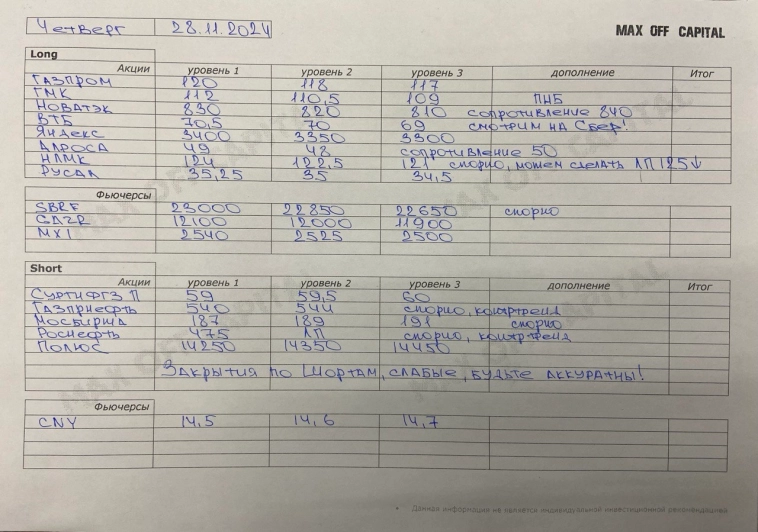 Четверг 28.11.2024 MAX OFF CAPITAL
Long
Акции уровень 1 уровень 2 уровень 3 дополнение Итог
ГАЗПРОМ 120 118 117
ГМК 112 110,5 109 ПНБ
НОВАТЭК 830 820 810 сопротивление 840
ВТБ 70,5 70 69 смотрим на Сбер!
Яндекс 3400 3350 3300
АЛРОСА 49 48 сопротивление 50
НЛМК 124 122,5 121 спорно, можем сделать ЛП 125↓
РУСАЛ 35,25 35 34,5
Фьючерсы
SBRF 23000 22850 22650 спорно
GAZR 12100 12000 11900
MXI 2540 2525 2500
Short
Акции уровень 1 уровень 2 уровень 3 дополнение Итог
Сургнфгз П 59 59,5 60
Газпрнефть 540 544 спорно, контртренд
Мосбиржа 187 189 191 спорно
Роснефть 475 ЛП спорно, контртренд
Полюс 14250 14350 14450
Закрытия по шортам, слабые, будьте аккуратны!
Фьючерсы
CNY 14,5 14,6 14,7
Данная информация не является индивидуальной инвестиционной рекомендацией
MAX OFF CAPITAL
MAX OFF CAPITAL
MAX OFF CAPITAL
MAX OFF CAPITAL